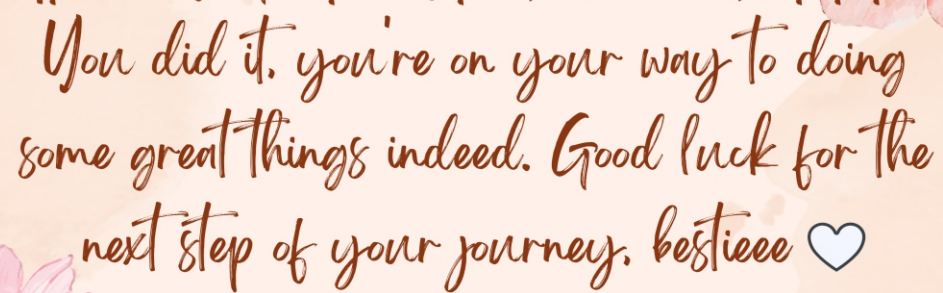 You did it, you're on your way to doing
some great things indeed. Good luck for the
next step of your journey, bestieee 🤍